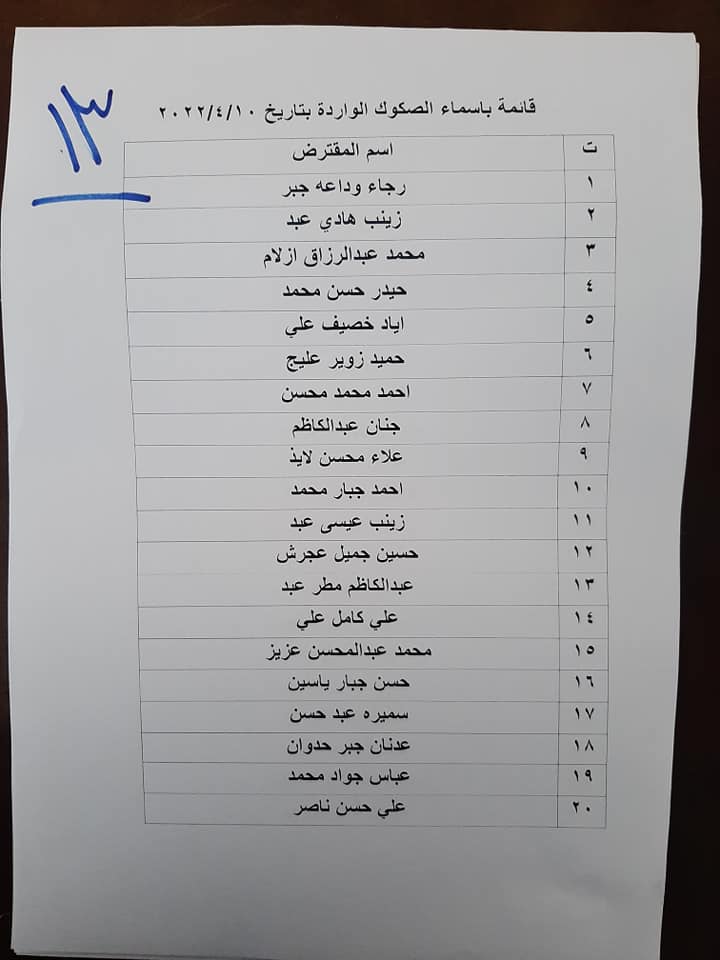 ١٣
قائمة باسماء الصكوك الواردة بتاريخ ٢٠٢٢/٤/١٠
ت اسم المقترض
١ رجاء وداعه جبر
٢ زينب هادي عبد
٣ محمد عبدالرزاق ازلام
٤ حيدر حسن محمد
٥ اياد خصيف علي
٦ حميد زوير عليج
٧ احمد محمد محسن
٨ جنان عبدالكاظم
٩ علاء محسن لايذ
١٠ احمد جبار محمد
١١ زينب عيسى عبد
١٢ حسين جميل عجرش
١٣ عبدالكاظم مطر عبد
١٤ علي كامل علي
١٥ محمد عبدالمحسن عزيز
١٦ حسن جبار ياسين
١٧ سميره عبد حسن
١٨ عدنان جبر حدوان
١٩ عباس جواد محمد
٢٠ علي حسن ناصر